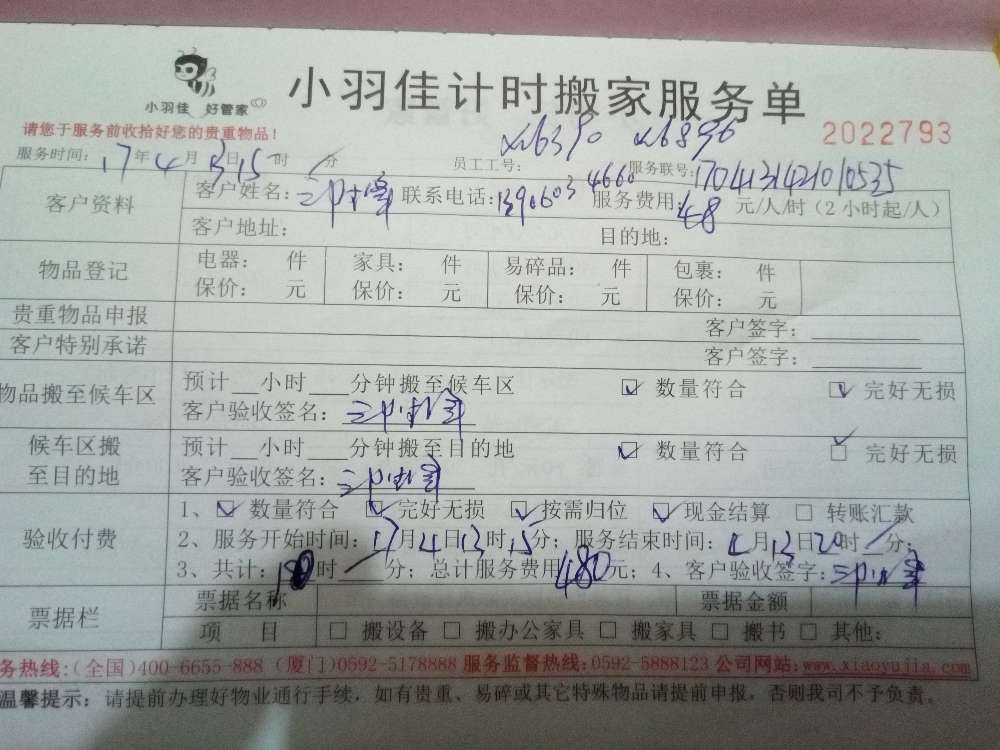 小羽佳 好管家
小羽佳计时搬家服务单
请您于服务前收拾好您的贵重物品！
x16390 x16896
2022793
服务时间：17年4月13日15时/分 员工工号： 服务联号：1704131421010535
客户资料
客户姓名： 联系电话：13906034660 服务费用：48元/人/时（2小时起/人）
客户地址： 目的地：
物品登记
电器： 件 家具： 件 易碎品： 件 包裹： 件
保价： 元 保价： 元 保价： 元 保价： 元
贵重物品申报 客户签字：
客户特别承诺 客户签字：
物品搬至候车区
预计__小时__分钟搬至候车区 ☑ 数量符合 ☑ 完好无损
客户验收签名：
候车区搬至目的地
预计__小时__分钟搬至目的地 ☑ 数量符合 ☑ 完好无损
客户验收签名：
验收付费
1、☑ 数量符合 ☑ 完好无损 ☑ 按需归位 ☑ 现金结算 □ 转账汇款
2、服务开始时间：17月4日13时15分；服务结束时间：4月13日20时/分；
3、共计：10时/分；总计服务费用480元；4、客户验收签字：
票据栏
票据名称 票据金额
项 目 □ 搬设备 □ 搬办公家具 □ 搬家具 □ 搬书 □ 其他：
务热线:(全国)400-6655-888 (厦门)0592-5178888 服务监督热线:0592-5888123 公司网站:www.xiaoyujia.com
温馨提示：请提前办理好物业通行手续，如有贵重、易碎或其它特殊物品请提前申报，否则我司不予负责。